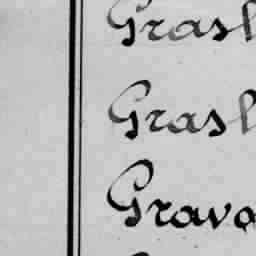 Grasl
Grasl
Grava